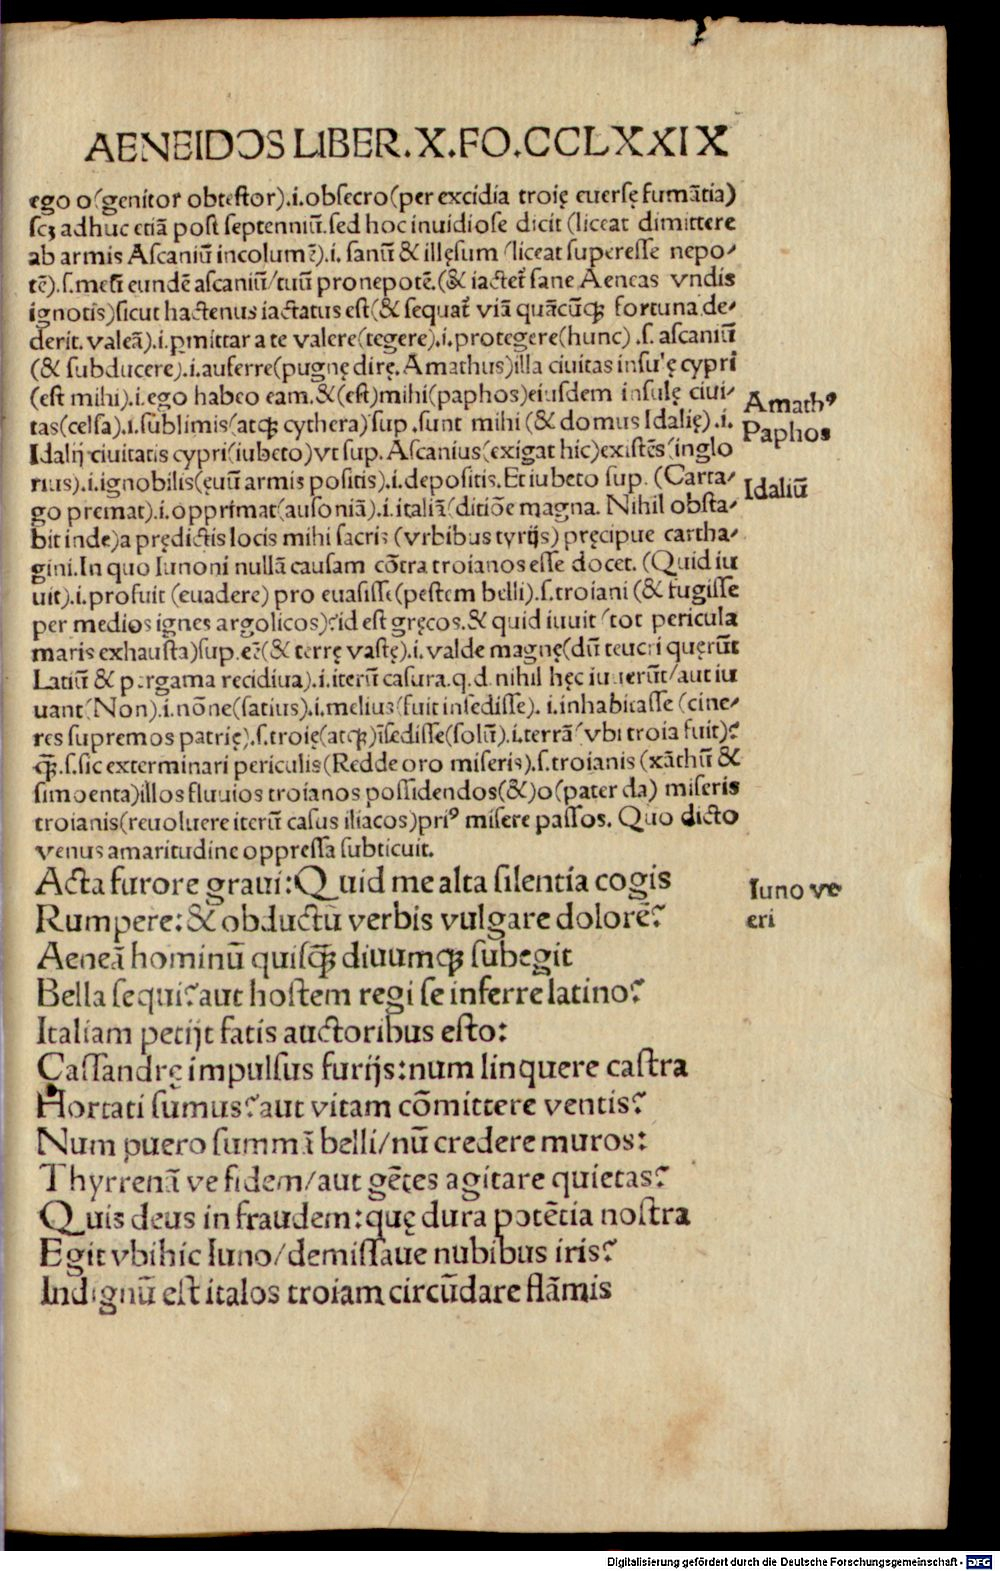 AENEIDOS LIBER.X.FO.CCLXXIX
ego o(genitor obtestor).i.obsecro(per excidia troię euersę fumātia)
scꝫ adhuc etiā post septenniū.sed hoc inuidiose dicit (liceat dimittere
ab armis Ascaniū incolumē).i. sanū & illęsum (liceat superesse nepo⸗
tē).s.meū eundē ascaniū/tuū pronepotē.(& iactet᷑ sane Aeneas vndis
ignotis)sicut hactenus iactatus est(& sequat᷑ viā quācūqꝫ fortuna de⸗
derit. valeā).i.ꝑmittar a te valere(tegere).i.protegere(hunc) .s. ascaniū
(& subducere).i.auferre(pugnę dirę. Amathus)illa ciuitas insulę cypri
(est mihi).i.ego habeo eam.&(est)mihi(paphos)eiusdem insulę ciui⸗
tas(celsa).i.sublimis(atqꝫ cythera)sup .sunt mihi (& domus Idalię) .i.
Idalij ciuitatis cypri(iubeto)vt sup. Ascanius(exigat hic)existēs(inglo
rius).i.ignobilis(ęuū armis positis).i.depositis.Et iubeto sup. (Carta⸗
go premat).i.opprimat(ausoniā).i.italiā(ditiōe magna. Nihil obsta⸗
bit inde)a prędictis locis mihi sacris (vrbibus tyrijs) pręcipue cartha⸗
gini.In quo Iunoni nullā causam cōtra troianos esse docet. (Quid iu
uit).i.profuit (euadere) pro euasisse(pestem belli).s.troiani (& fugisse
per medios ignes argolicos)?id est gręcos.& quid iuuit (tot pericula
maris exhausta)sup.eē(& terrę vastę).i. valde magnę(dū teucri quęrūt
Latiū & pergama recidiua).i.iterū casura.q.d.nihil hęc iuuerūt/aut iu
uant(Non).i.nōne(satius).i.melius(fuit insedisse). i.inhabitasse (cine⸗
res supremos patrię).s.troię(atqꝫ)īsedisse(solū).i.terrā(vbi troia fuit)?
q̄ꝫ.s.sic exterminari periculis(Redde oro miseris).s.troianis (xāthū &
simoenta)illos fluuios troianos possidendos(&)o(pater da) miseris
troianis(reuoluere iterū casus iliacos)pri⁹ misere passos. Quo dicto
venus amaritudine oppressa subticuit.
Amath⁹
Paphos
Idaliū
Acta furore graui:Quid me alta silentia cogis
Rumpere:& obductū verbis vulgare dolorē?
Aeneā hominū quisq̄ꝫ diuumqꝫ subegit
Bella sequi?aut hostem regi se inferre latino?
Italiam petijt fatis auctoribus esto:
Cassandrę impulsus furijs:num linquere castra
Hortati sumus?aut vitam cōmittere ventis?
Num puero summā belli/nū credere muros:
Thyrrenā ve fidem/aut gētes agitare quietas?
Quis deus in fraudem:quę dura potētia nostra
Egit vbi hic Iuno/demissaue nubibus iris?
Indignū est italos troiam circūdare flāmis
Iuno ve
eri
Digitalisierung gefördert durch die Deutsche Forschungsgemeinschaft - DFG